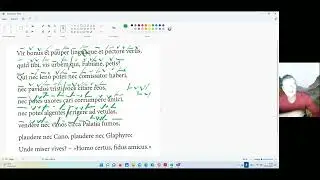 Vir bonus et pauper linguaque et pectore verus,
quid tibi vis urbem qui, Fabiane, petis?
Qui nec leno potes nec comissator haberi,
nec pavidos tristi voce citare reos,
nec potes uxorem cari corrumpere amici,
nec potes algentes arrigere ad vetulas,
vendere nec vanos circa Palatia fumos,
plaudere nec Cano, plaudere nec Glaphyro:
Unde miser vives? – «Homo certus, fidus amicus» –